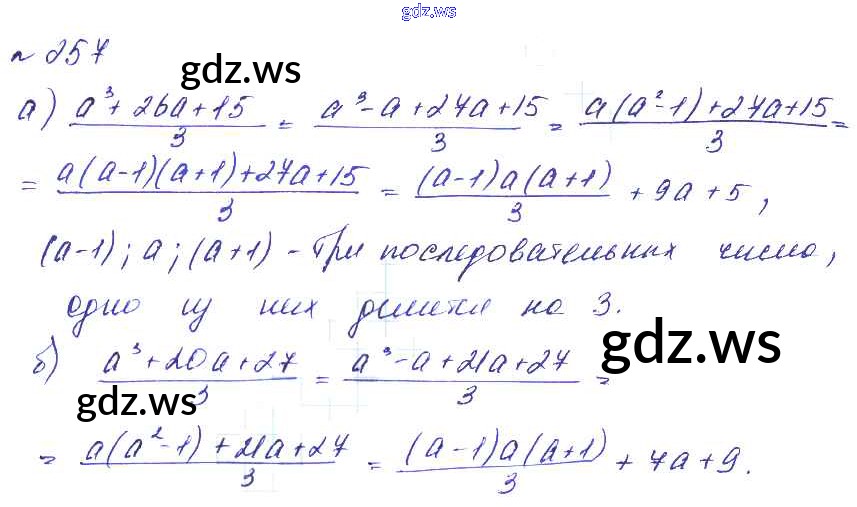 gdz.ws
№ 257
gdz.ws
а) (a³ + 26a + 15)/3 = (a³ - a + 27a + 15)/3 = (a(a² - 1) + 27a + 15)/3 =
= (a(a - 1)(a + 1) + 27a + 15)/3 = ((a - 1)a(a + 1))/3 + 9a + 5,
(a - 1); a; (a + 1) - три последовательных числа,
одно из них делится на 3.
gdz.ws
б) (a³ + 20a + 27)/3 = (a³ - a + 21a + 27)/3 =
gdz.ws
= (a(a² - 1) + 21a + 27)/3 = ((a - 1)a(a + 1))/3 + 7a + 9.